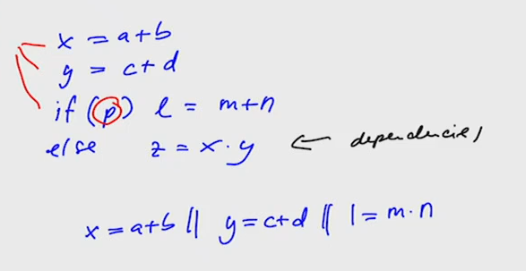 x = a+b
y = c+d
if (p) l = m+n
else z = x·y ← dependencies
x = a+b || y = c+d || l = m·n